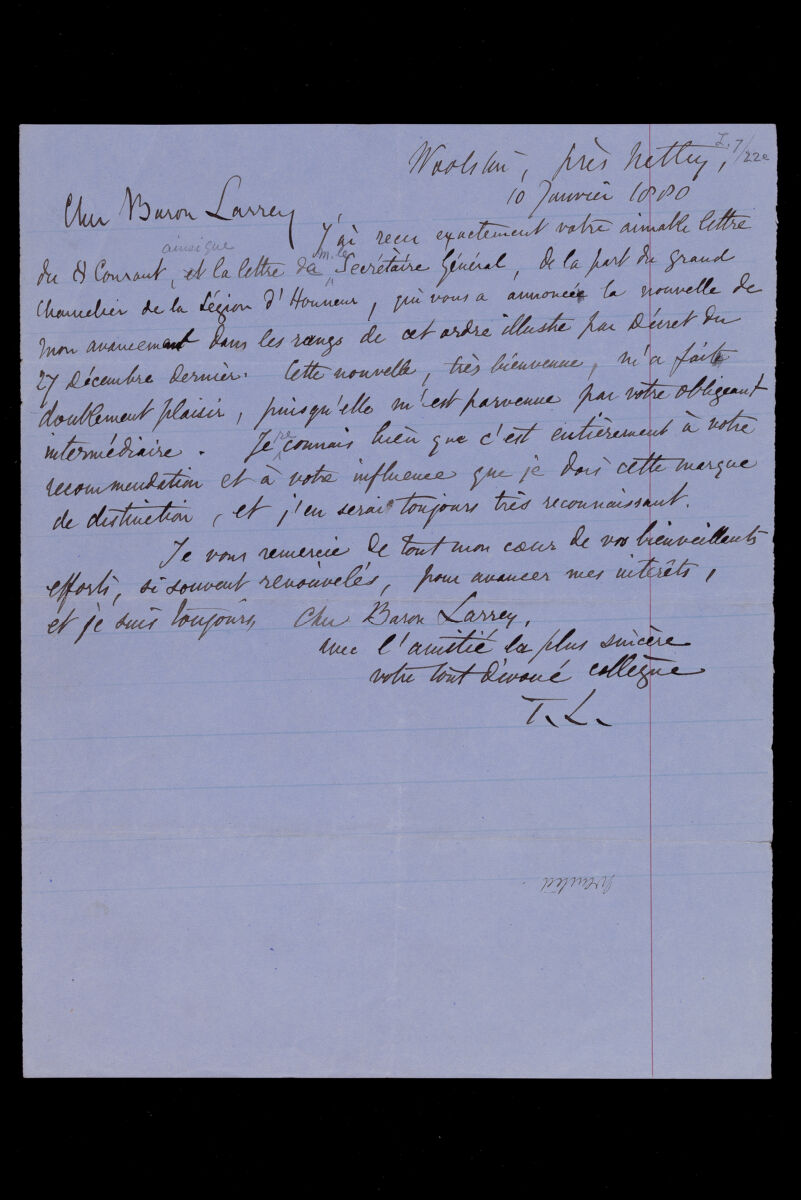 I. 7/22e
Woolston, près Netley,
10 Janvier 1880
Cher Baron Larrey
J'ai reçu exactement votre aimable lettre
ainsi que
du 8 Courant, et la lettre de m. le Secrétaire Général, de la part du grand
Chancelier de la Légion d'Honneur, qui vous a annoncé la nouvelle de
mon avancement dans les rangs de cet ordre illustre par Décret du
27 Décembre dernier. Cette nouvelle, très bienvenue, m'a faite
doublement plaisir, puisqu'elle m'est parvenue par votre obligeant
intermédiaire. Je reconnais bien que c'est entièrement à votre
recommendation et à votre influence que je dois cette marque
de distinction, et j'en serai toujours très reconnaissant.
Je vous remercie de tout mon cœur de vos bienveillents
efforts, si souvent renouvelés, pour avancer mes intérêts,
et je suis toujours, Cher Baron Larrey,
avec l'amitié la plus sincère
votre tout dévoué collègue
T. L.